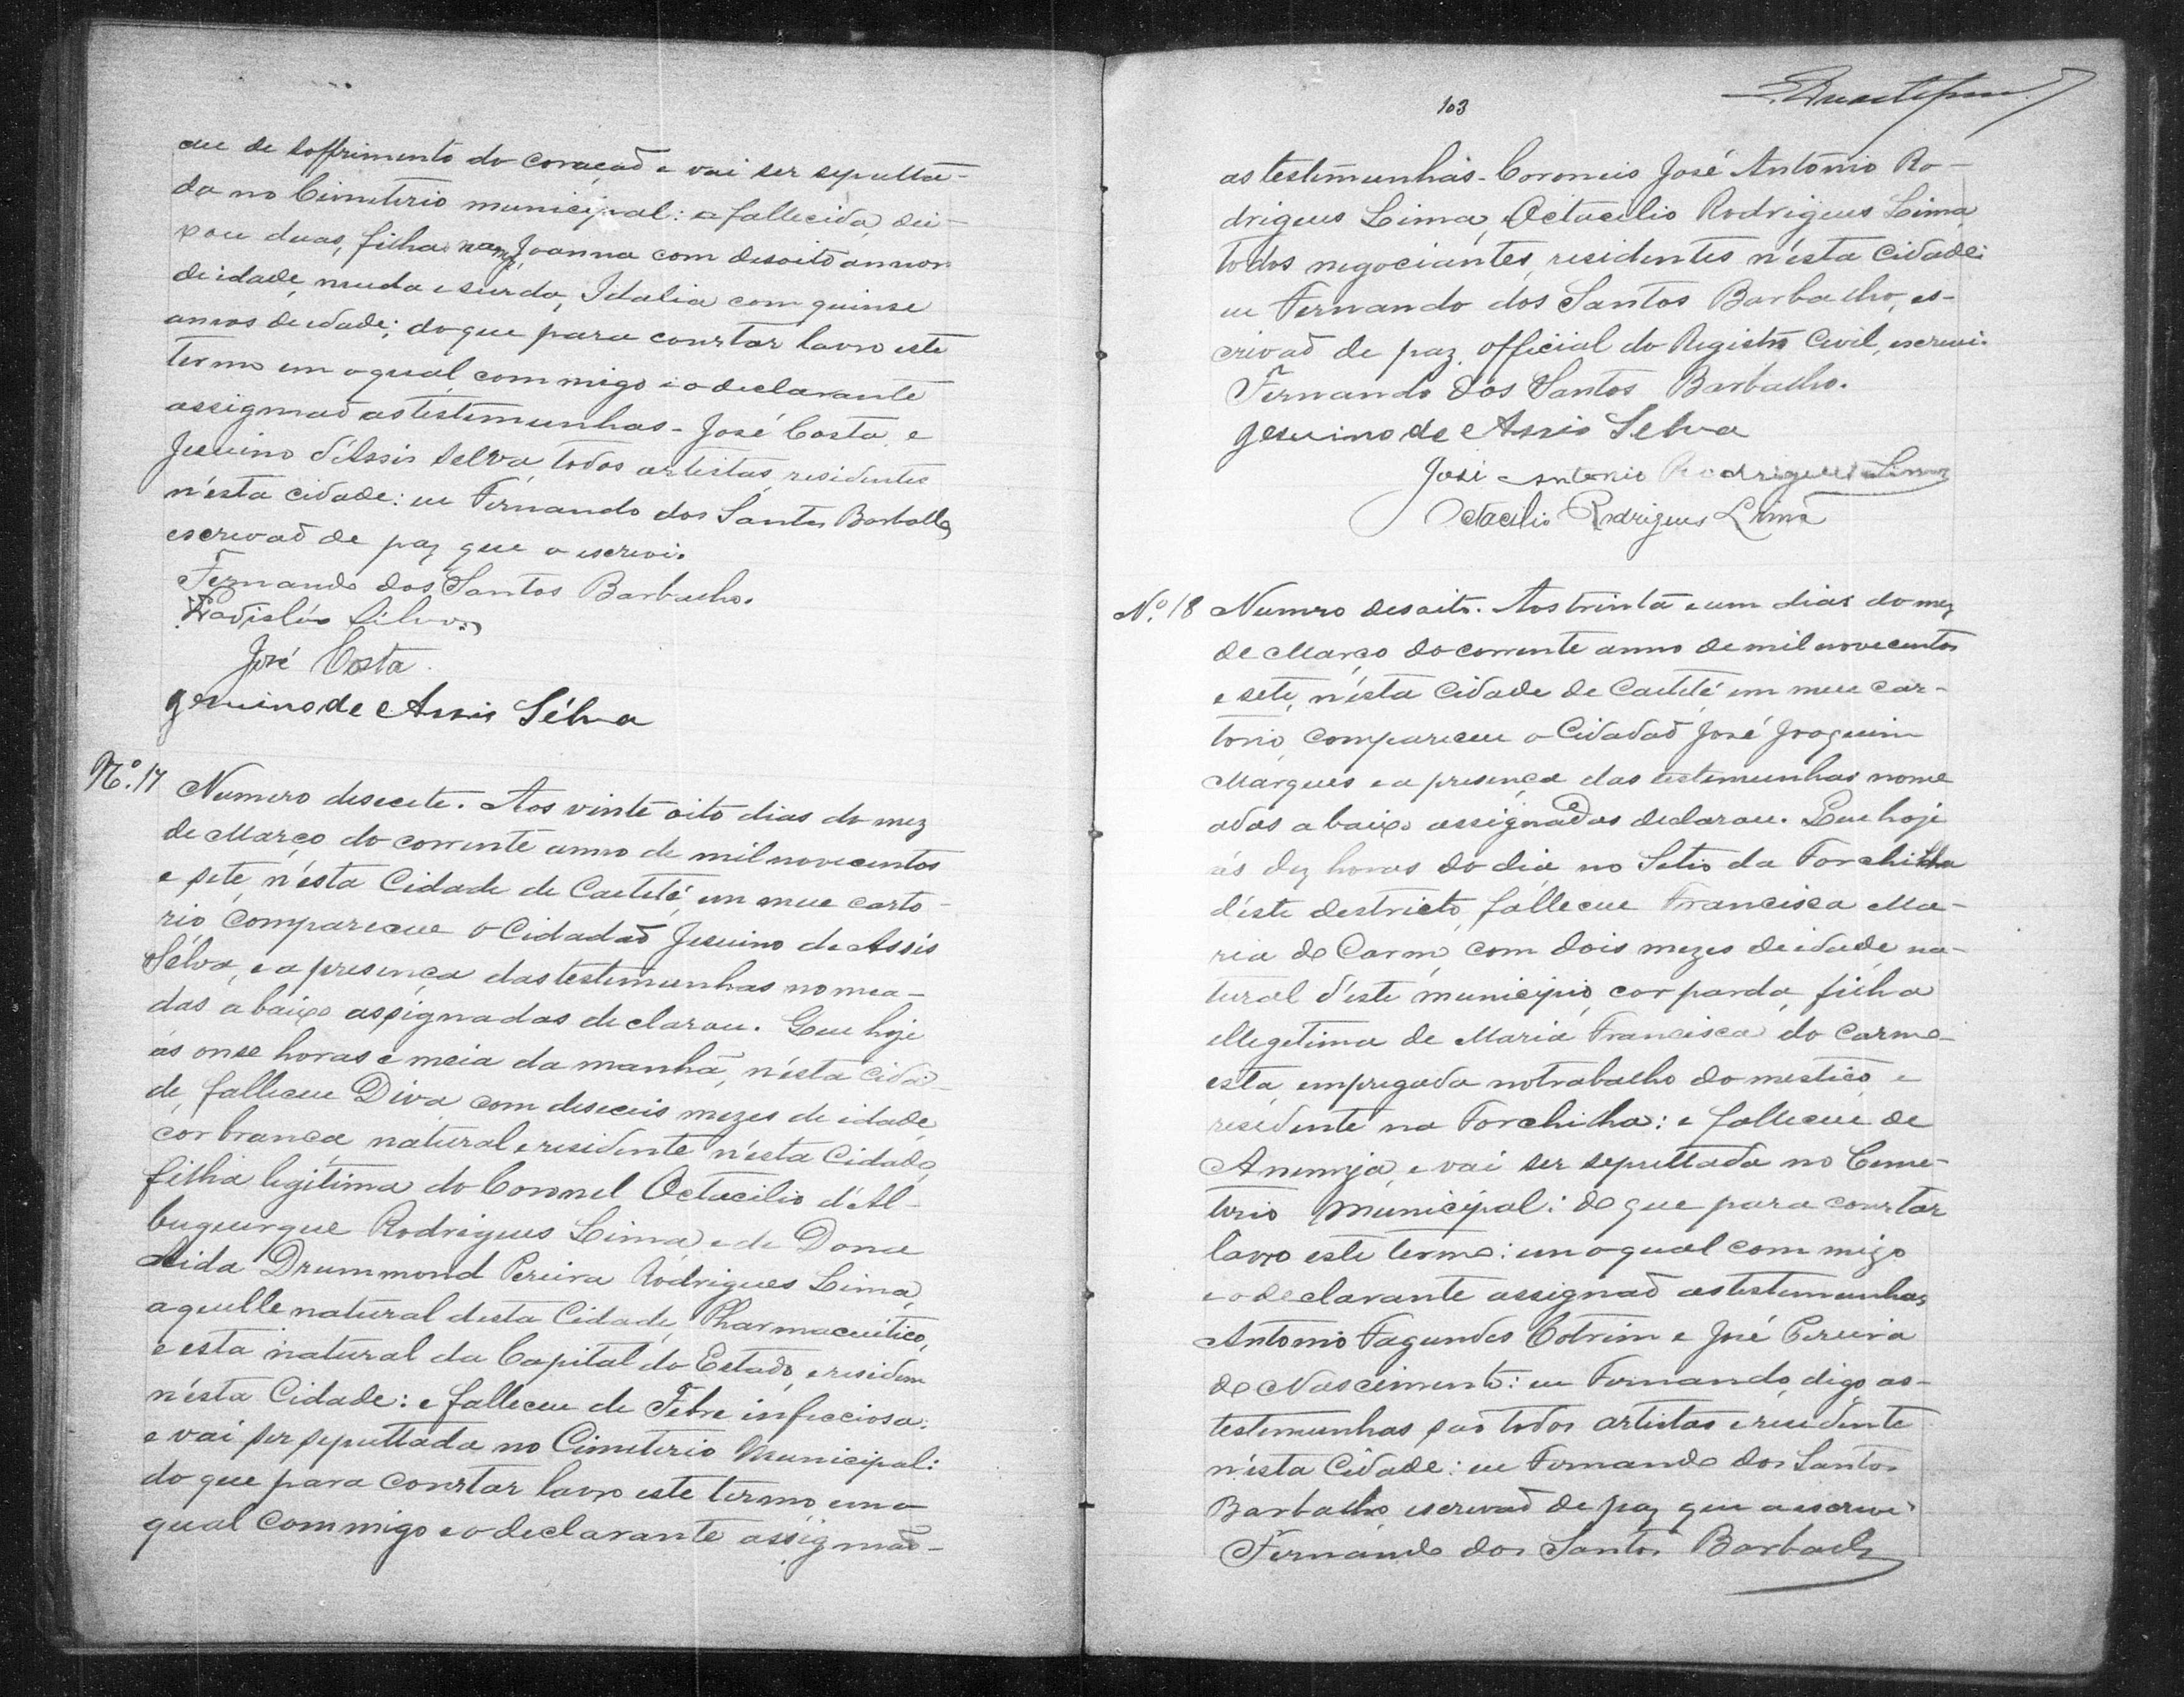 ceu de soffrimento do coraçaõ e vai ser sepulta-
da no Cimiterio municipal: a fallecida dei-
xou duas, filhas Joanna com desoito annos
de idade, muda e surda, Idalia com quinse
annos de idade; do que para constar lavro este
termo em o qual commigo e o declarante
assignaõ as testemunhas - José Costa e
Jesuino d'Assis Selva, todos artistas, residentes
n'esta cidade: eu Fernando dos Santos Barbalho
escrevaõ de paz que o escrevi.
Fernando dos Santos Barbalho.
Ladisláo Silva
José Costa.
Gesuino de Assis Sélva
Nº. 17 Numero desecete. Aos vinte oito dias do mez
de Março do corrente anno de mil novecentos
e sete, n'esta Cidade de Caeteté, em meu carto-
rio, compareceu o Cidadaõ Jesuino de Assis
Sélva, e a presença das testemunhas nomea-
das abaixo assignadas declarou. Que hoje
ás onse horas e meia da manhã, n'esta Cida-
de, falleceu Diva com deseceis mezes de idade,
cor branca, natural e residente n'esta Cidade,
filha legitima do Coronel Octacilio d'Al-
buquerque Rodrigues Lima, e de Dona
Aida Drummond Pereira Rodrigues Lima,
aquelle natural desta Cidade, Pharmaceutico,
e esta natural da Capital do Estado, e residem
n'esta Cidade: e falleceu de Febre infecciosa:
e vai ser sepultada no Cimiterio Municipal:
do que para constar lavro este termo em o
qual commigo e o declarante assignaõ-
103
as testemunhas - Coroneis José Antonio Ro-
drigues Lima, Octacilio Rodrigues Lima,
todos negociantes, residentes n'esta Cidade:
eu Fernando dos Santos Barbalho, es-
crivaõ de paz, official do Registro Civil, escrevi.
Fernando dos Santos Barbalho.
Gesuino de Assis Selva
José Antonio Rodrigues Lima
Octacilio Rodrigues Lima
Nº. 18 Numro desoito. Aos trinta e um dias do mez
de Março do corrente anno de mil novecentos
e sete, n'esta Cidade de Caeteté em meu car-
torio, compareceu o Cidadaõ José Joaquim
Marques e a presença das testemunhas nome
adas abaixo assignadas declarou. Que hoje
ás dez horas do dia, no Setio da Forchilha
d'este destricto, falleceu Francisca Ma-
ria do Carmo, com dois mezes de idade, na-
tural d'este municipio, cor parda, filha
illegetima de Maria Francisca do Carmo-
esta empregada no trabalho domestico, e
residente na Forchilha: e falleceu de
Anemia, e vai ser sepultada no Ceme-
terio Municipal: do que para constar
lavro este termo: em o qual commigo
e o declarante assignaõ as testemunhas
Antonio Fagundes Cotrim e José Pereira
do Nascimento: eu Fernando, digo, as-
testemunhas saõ todos artistas e residente
n'esta Cidade: eu Fernando dos Santos
Barbalho, escrevaõ de paz que a escrevi
Fernando dos Santos Barbalho